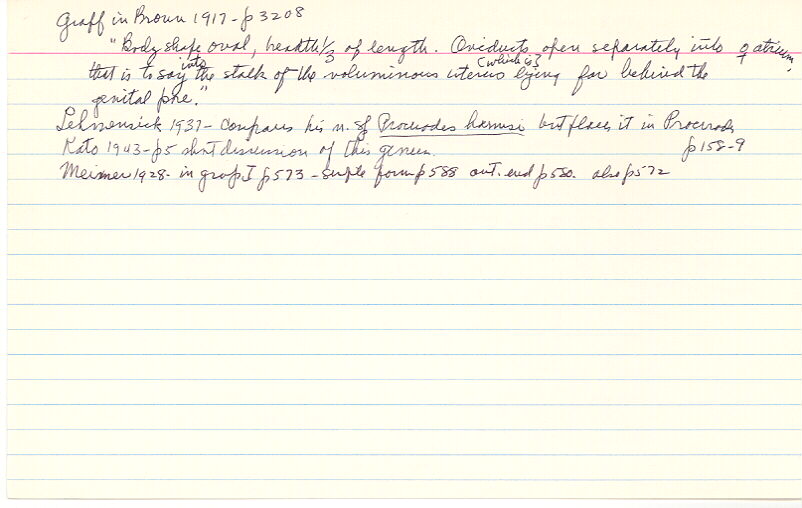 Graff in Bronn 1917 - p 3208
"Body shape oval, breadth 1/3 of length. Oviducts open separately into ♀ atrium,
that is to say into the stalk of the voluminous uterus (which is) lying far behind the
genital pore."
Lehnensick 1937 - compares his n. sp Procerodes harmsi but places it in Procerodes
Kato 1943 - p5 short discussion of this genus. p158-9
Meixner 1928 - in group I p573 - simple form p588 ant. end p580. also p572